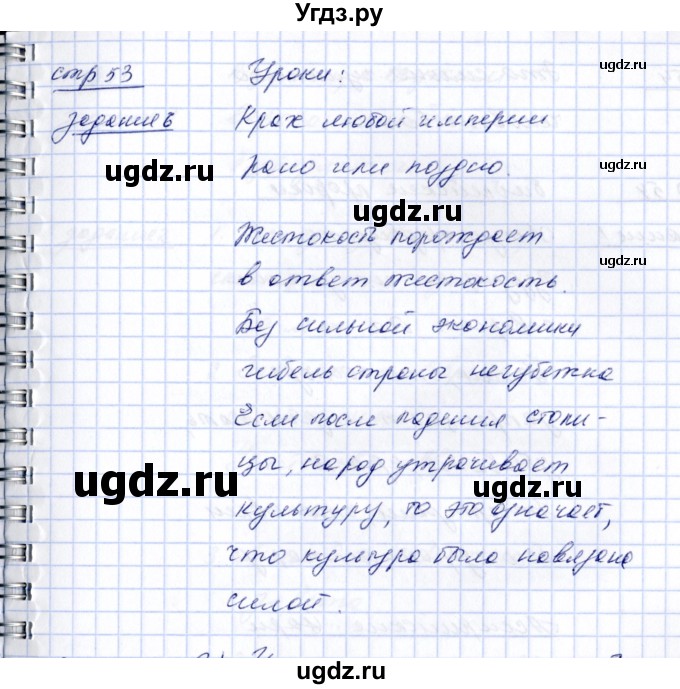 Угдз.ру
стр 53 Уроки: ugdz.ru
задание 6 Крах любой империи
ugdz.ru рано или поздно. ugdz.ru
ugdz.ru
Жестокость порождает
ugdz.ru
в ответ жестокость.
Без сильной экономики
ugdz.ru
гибель страны неизбежна
Если после падения столи-
ugdz.ru
цы, народ утрачивает
ugdz.ru
культуру, то это означает,
ugdz.ru
что культура была навязана
силой.
ugdz.ru
ugdz.ru